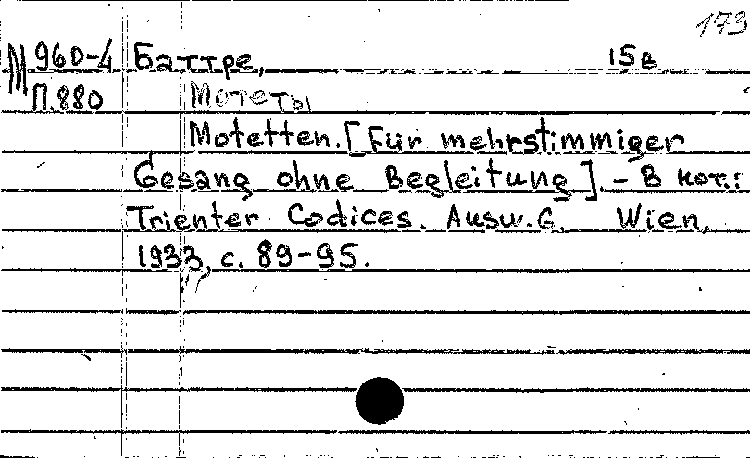 173
М 960-4 Баттре, 15 в
П.880 Мотеты
Motetten. [Für mehrstimmiger
Gesang ohne Begleitung]. – В кот.:
Trienter Codices. Ausw. 6. Wien,
1933, с. 89-95.